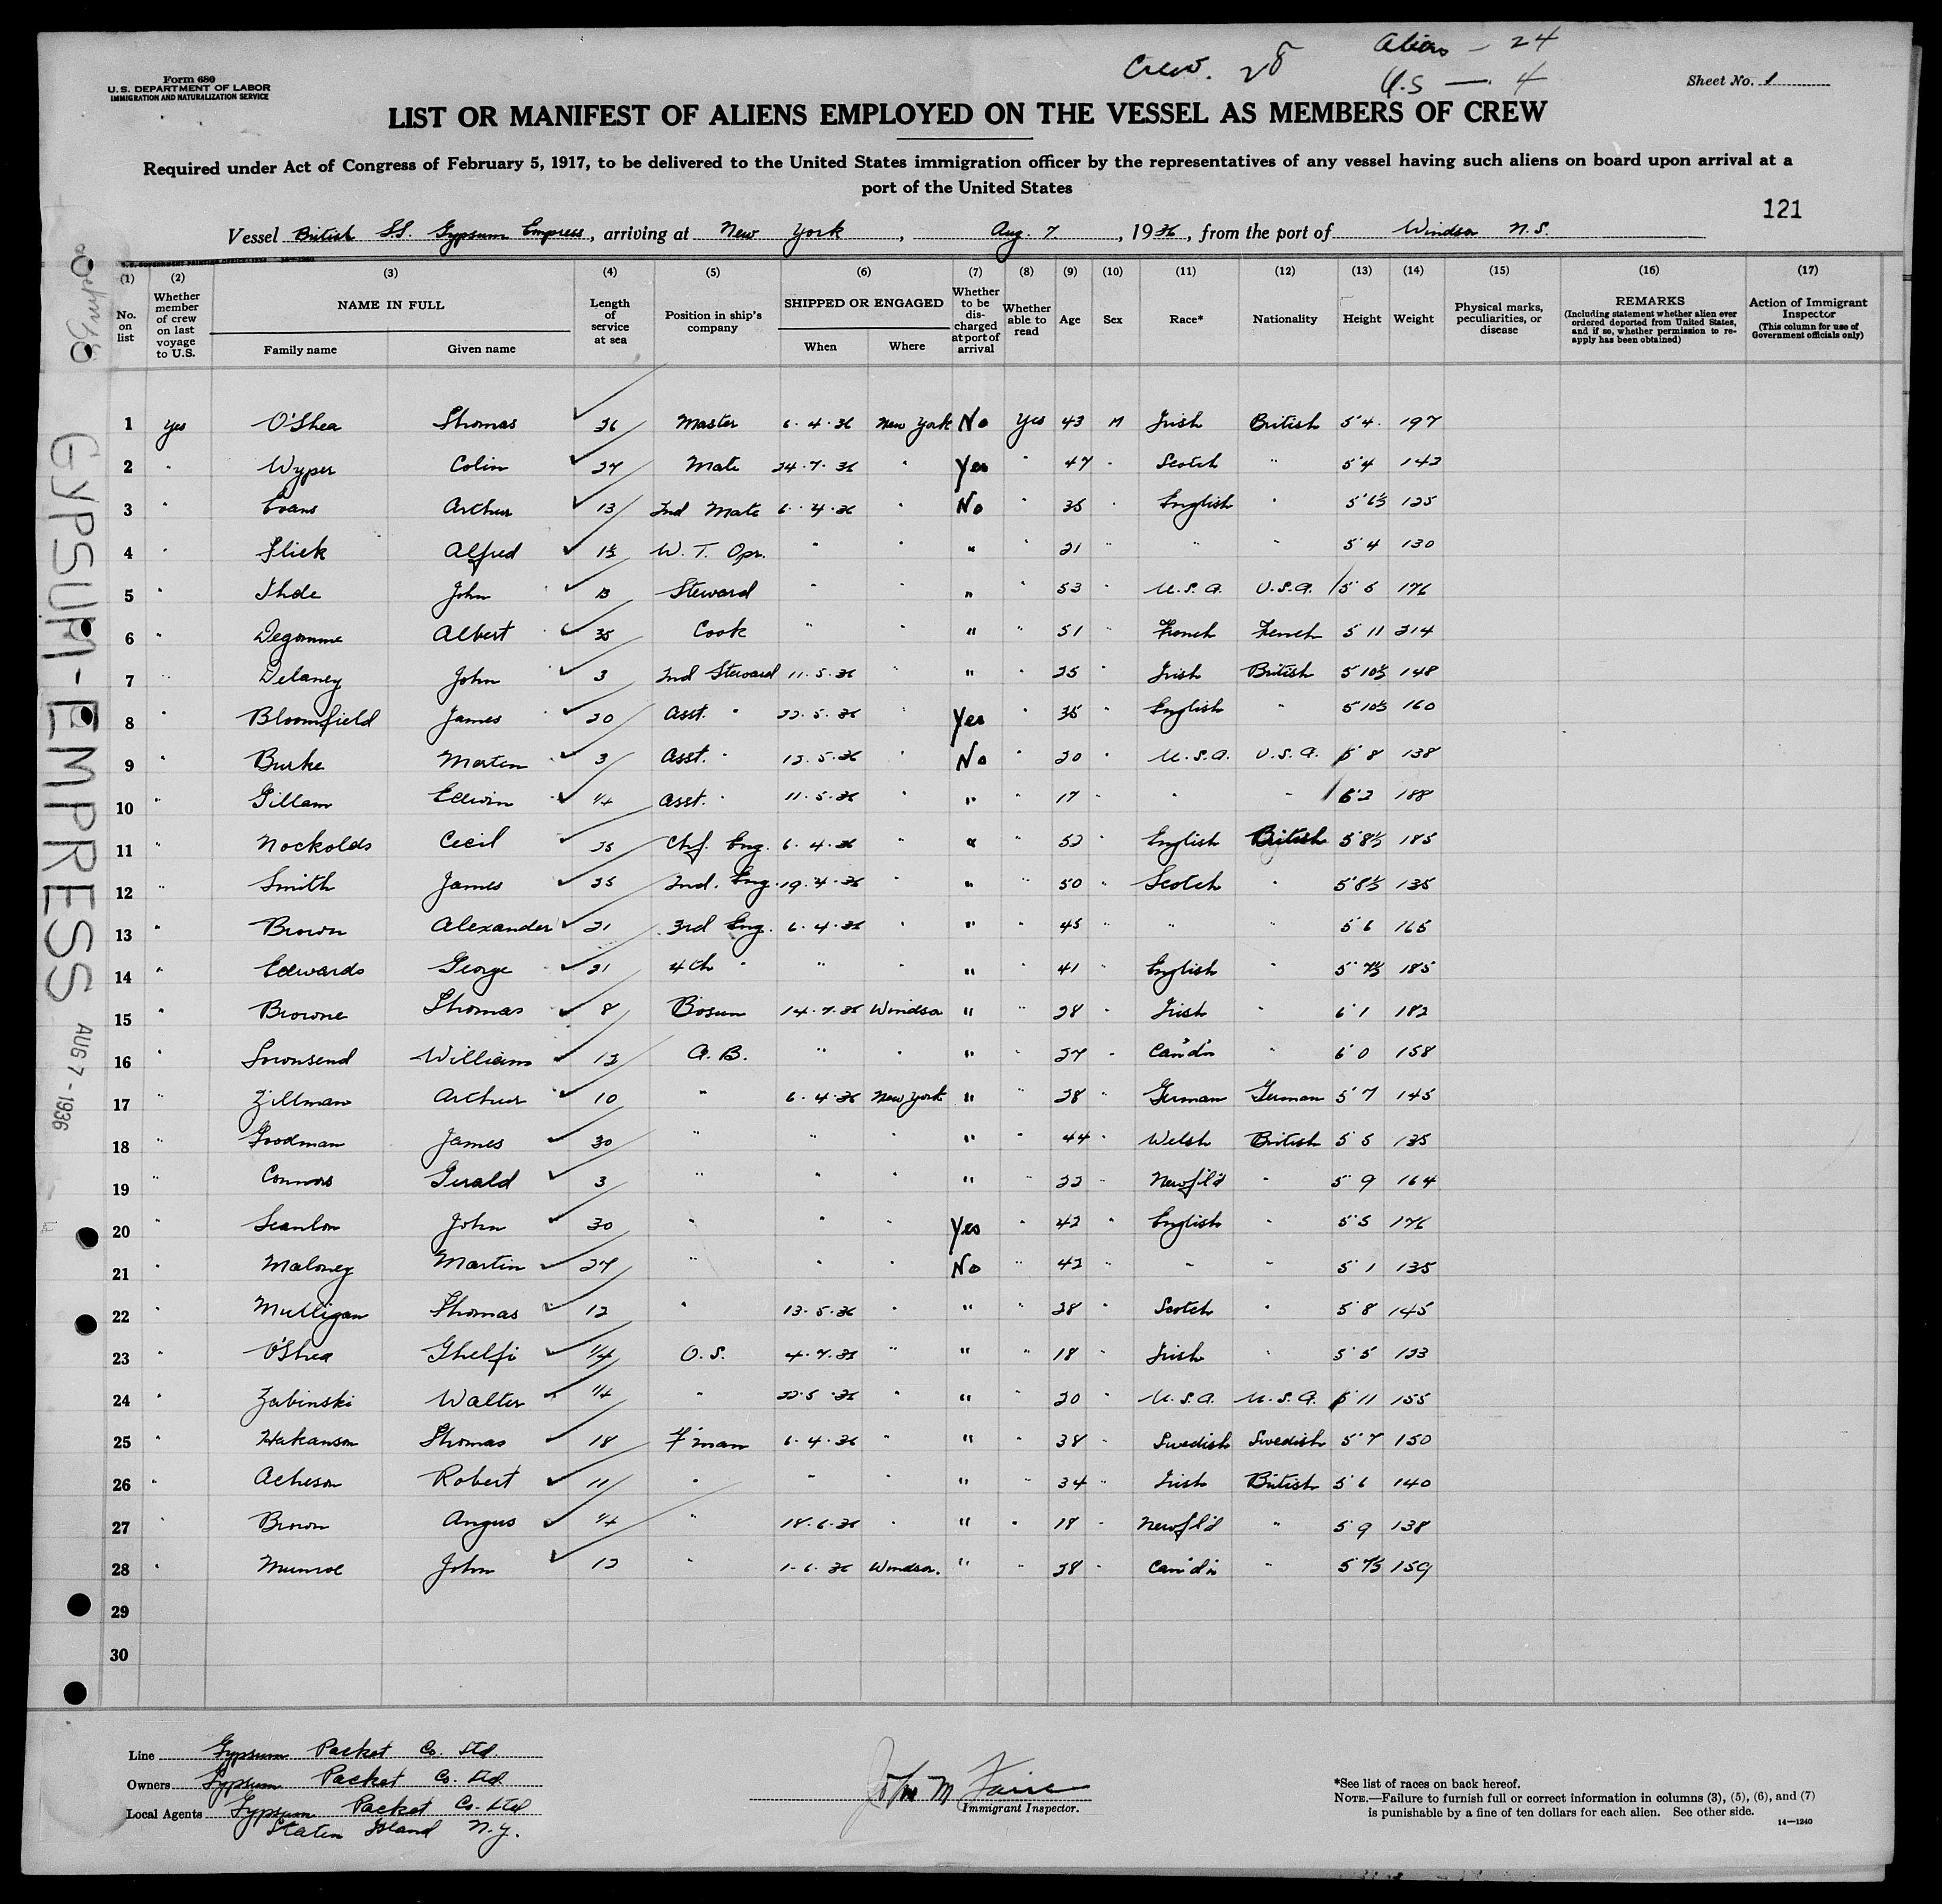 Crew. 28 Aliens — 24
U.S — 4
Form 680
U.S. DEPARTMENT OF LABOR
IMMIGRATION AND NATURALIZATION SERVICE
Sheet No. 1
LIST OR MANIFEST OF ALIENS EMPLOYED ON THE VESSEL AS MEMBERS OF CREW
Required under Act of Congress of February 5, 1917, to be delivered to the United States immigration officer by the representatives of any vessel having such aliens on board upon arrival at a
port of the United States
121
Vessel British SS. Gypsum Empress, arriving at New York, Aug. 7, 1936, from the port of Windsor N.S.
(1) (2) (3) (4) (5) (6) (7) (8) (9) (10) (11) (12) (13) (14) (15) (16) (17)
No. on list Whether member of crew on last voyage to U.S. NAME IN FULL Family name Given name Length of service at sea Position in ship's company SHIPPED OR ENGAGED When Where Whether to be discharged at port of arrival Whether able to read Age Sex Race* Nationality Height Weight Physical marks, peculiarities, or disease REMARKS (Including statement whether alien ever ordered deported from United States, and if so, whether permission to reapply has been obtained) Action of Immigrant Inspector (This column for use of Government officials only)
1 Yes O'Shea Thomas 26 Master 6.4.36 New York No Yes 43 M Irish British 5'4 197
2 " Wyper Colin 27 Mate 24.7.36 " Yes " 47 " Scotch " 5'4 142
3 " Evans Arthur 13 2nd Mate 6.4.36 " No " 35 " English " 5'6½ 125
4 " Slick Alfred 1½ W.T. Opr. " " " " 21 " " " 5'4 130
5 " Ihde John 13 Steward " " " " 53 " U.S.A. U.S.A. 5'6 176
6 " Degomme Albert 35 Cook " " " " 51 " French French 5 11 214
7 " Delaney John 3 2nd Steward 11.5.36 " " " 25 " Irish British 5 10½ 148
8 " Bloomfield James 20 Asst. " 22.5.36 " Yes " 35 " English " 5 10½ 160
9 " Burke Martin 3 Asst. " 12.5.36 " No " 20 " U.S.A. U.S.A. 5'8 138
10 " Gillam Edwin ¼ Asst. " 11.5.36 " " 17 " " " 6'2 188
11 " Nockolds Cecil 35 Chf. Eng. 6.4.36 " " " 52 " English British 5'8½ 185
12 " Smith James 25 2nd. Eng. 19.4.36 " " " 50 " Scotch " 5'8½ 135
13 " Brown Alexander 21 3rd Eng. 6.4.36 " " " 45 " " " 5'6 165
14 " Edwards George 21 4th " " " " " 41 " English " 5'7½ 185
15 " Browne Thomas 8 Bosun 14.7.36 Windsor " " 28 " Irish " 6'1 182
16 " Townsend William 12 A.B. " " " " 27 " Can'd'n " 6'0 158
17 " Zillman Arthur 10 " 6.4.36 New York " " 28 " German German 5'7 145
18 " Goodman James 30 " " " " " 44 " Welsh British 5'5 135
19 " Connors Gerald 3 " " " " " 22 " Newf'l'd " 5'9 164
20 " Scanlon John 30 " " " Yes " 42 " English " 5'5 176
21 " Maloney Martin 27 " " " No " 42 " " " 5'1 135
22 " Mulligan Thomas 12 " 13.5.36 " " " 28 " Scotch " 5'8 145
23 " O'Shea Ghelfi ¼ O.S. 4.7.36 " " " 18 " Irish " 5'5 123
24 " Zabinski Walter ¼ " 22.5.36 " " " 20 " U.S.A. U.S.A. 5'11 155
25 " Hakanson Thomas 18 F'man 6.4.36 " " " 38 " Swedish Swedish 5'7 150
26 " Acheson Robert 11 " " " " " 34 " Irish British 5'6 140
27 " Brown Angus ¼ " 18.6.36 " " " 18 " Newf'l'd " 5'9 138
28 " Munroe John 12 " 1.6.36 Windsor. " " 28 " Can'd'n " 5'7½ 159
29
30
GYPSUM-EMPRESS AUG 7 - 1936
Line Gypsum Packet Co. Ltd.
Owners Gypsum Packet Co. Ltd.
Local Agents Gypsum Packet Co. Ltd
Staten Island N.Y.
John M
Immigrant Inspector.
*See list of races on back hereof.
NOTE.—Failure to furnish full or correct information in columns (3), (5), (6), and (7)
is punishable by a fine of ten dollars for each alien. See other side.
14—1240